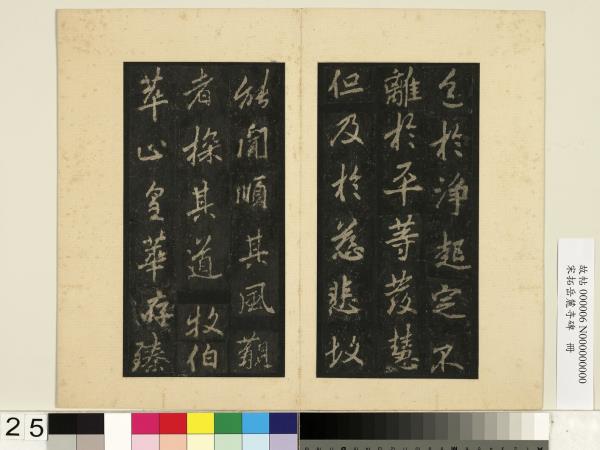 於淨起定不
離於平等發慧
但及於慈悲故
能聞順其風觀
者探其道牧伯
萃止皇華洊臻
故帖 000006 N000000000
宋拓岳麓寺碑 冊
25